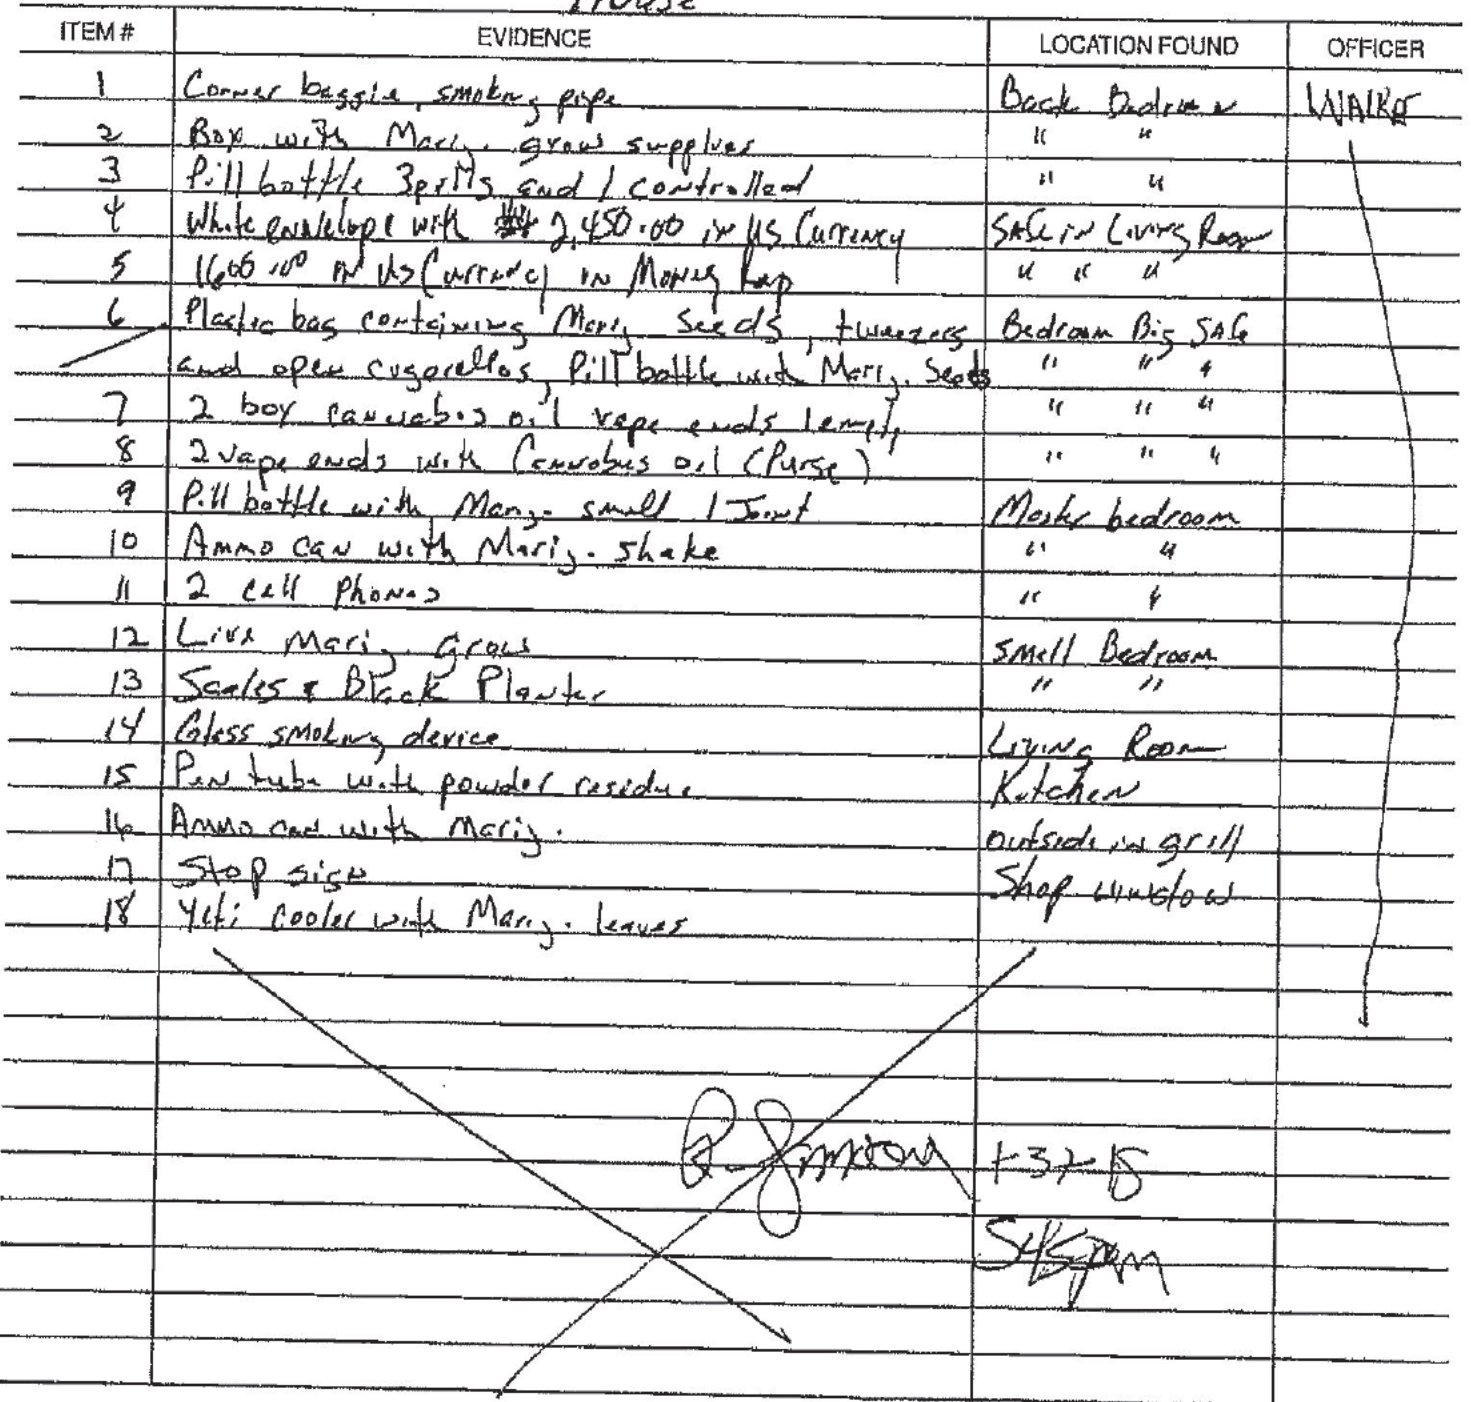 House
ITEM # EVIDENCE LOCATION FOUND OFFICER
1 Corner baggie, smoking pipe Back Bedroom WALKE
2 Box with Marij. grow supplies " "
3 Pill bottle 3 pills and 1 controlled " "
4 White envelope with 2,450.00 in US Currency SAFE IN Living Room
5 1600.00 IN US Currency IN Money " " "
6 Plastic bag containing Marij Seeds, tweezers Bedroom Big SAFE
and open cigarellos, Pill bottle with Marij. Seeds " " "
7 2 box cannabis oil vape ends 1 empty " " "
8 2 vape ends with Cannabus oil (Purse) " " "
9 Pill bottle with Marij. small 1 Joint Master bedroom
10 Ammo can with Marij. shake " "
11 2 cell phones " "
12 Live Marij. Grow Small Bedroom
13 Scales & Black Planter " "
14 Glass smoking device Living Room
15 Pen tube with powder residue Kitchen
16 Ammo can with Marij. outside in grill
17 Stop sign Shop window
18 Yeti cooler with Marij. leaves